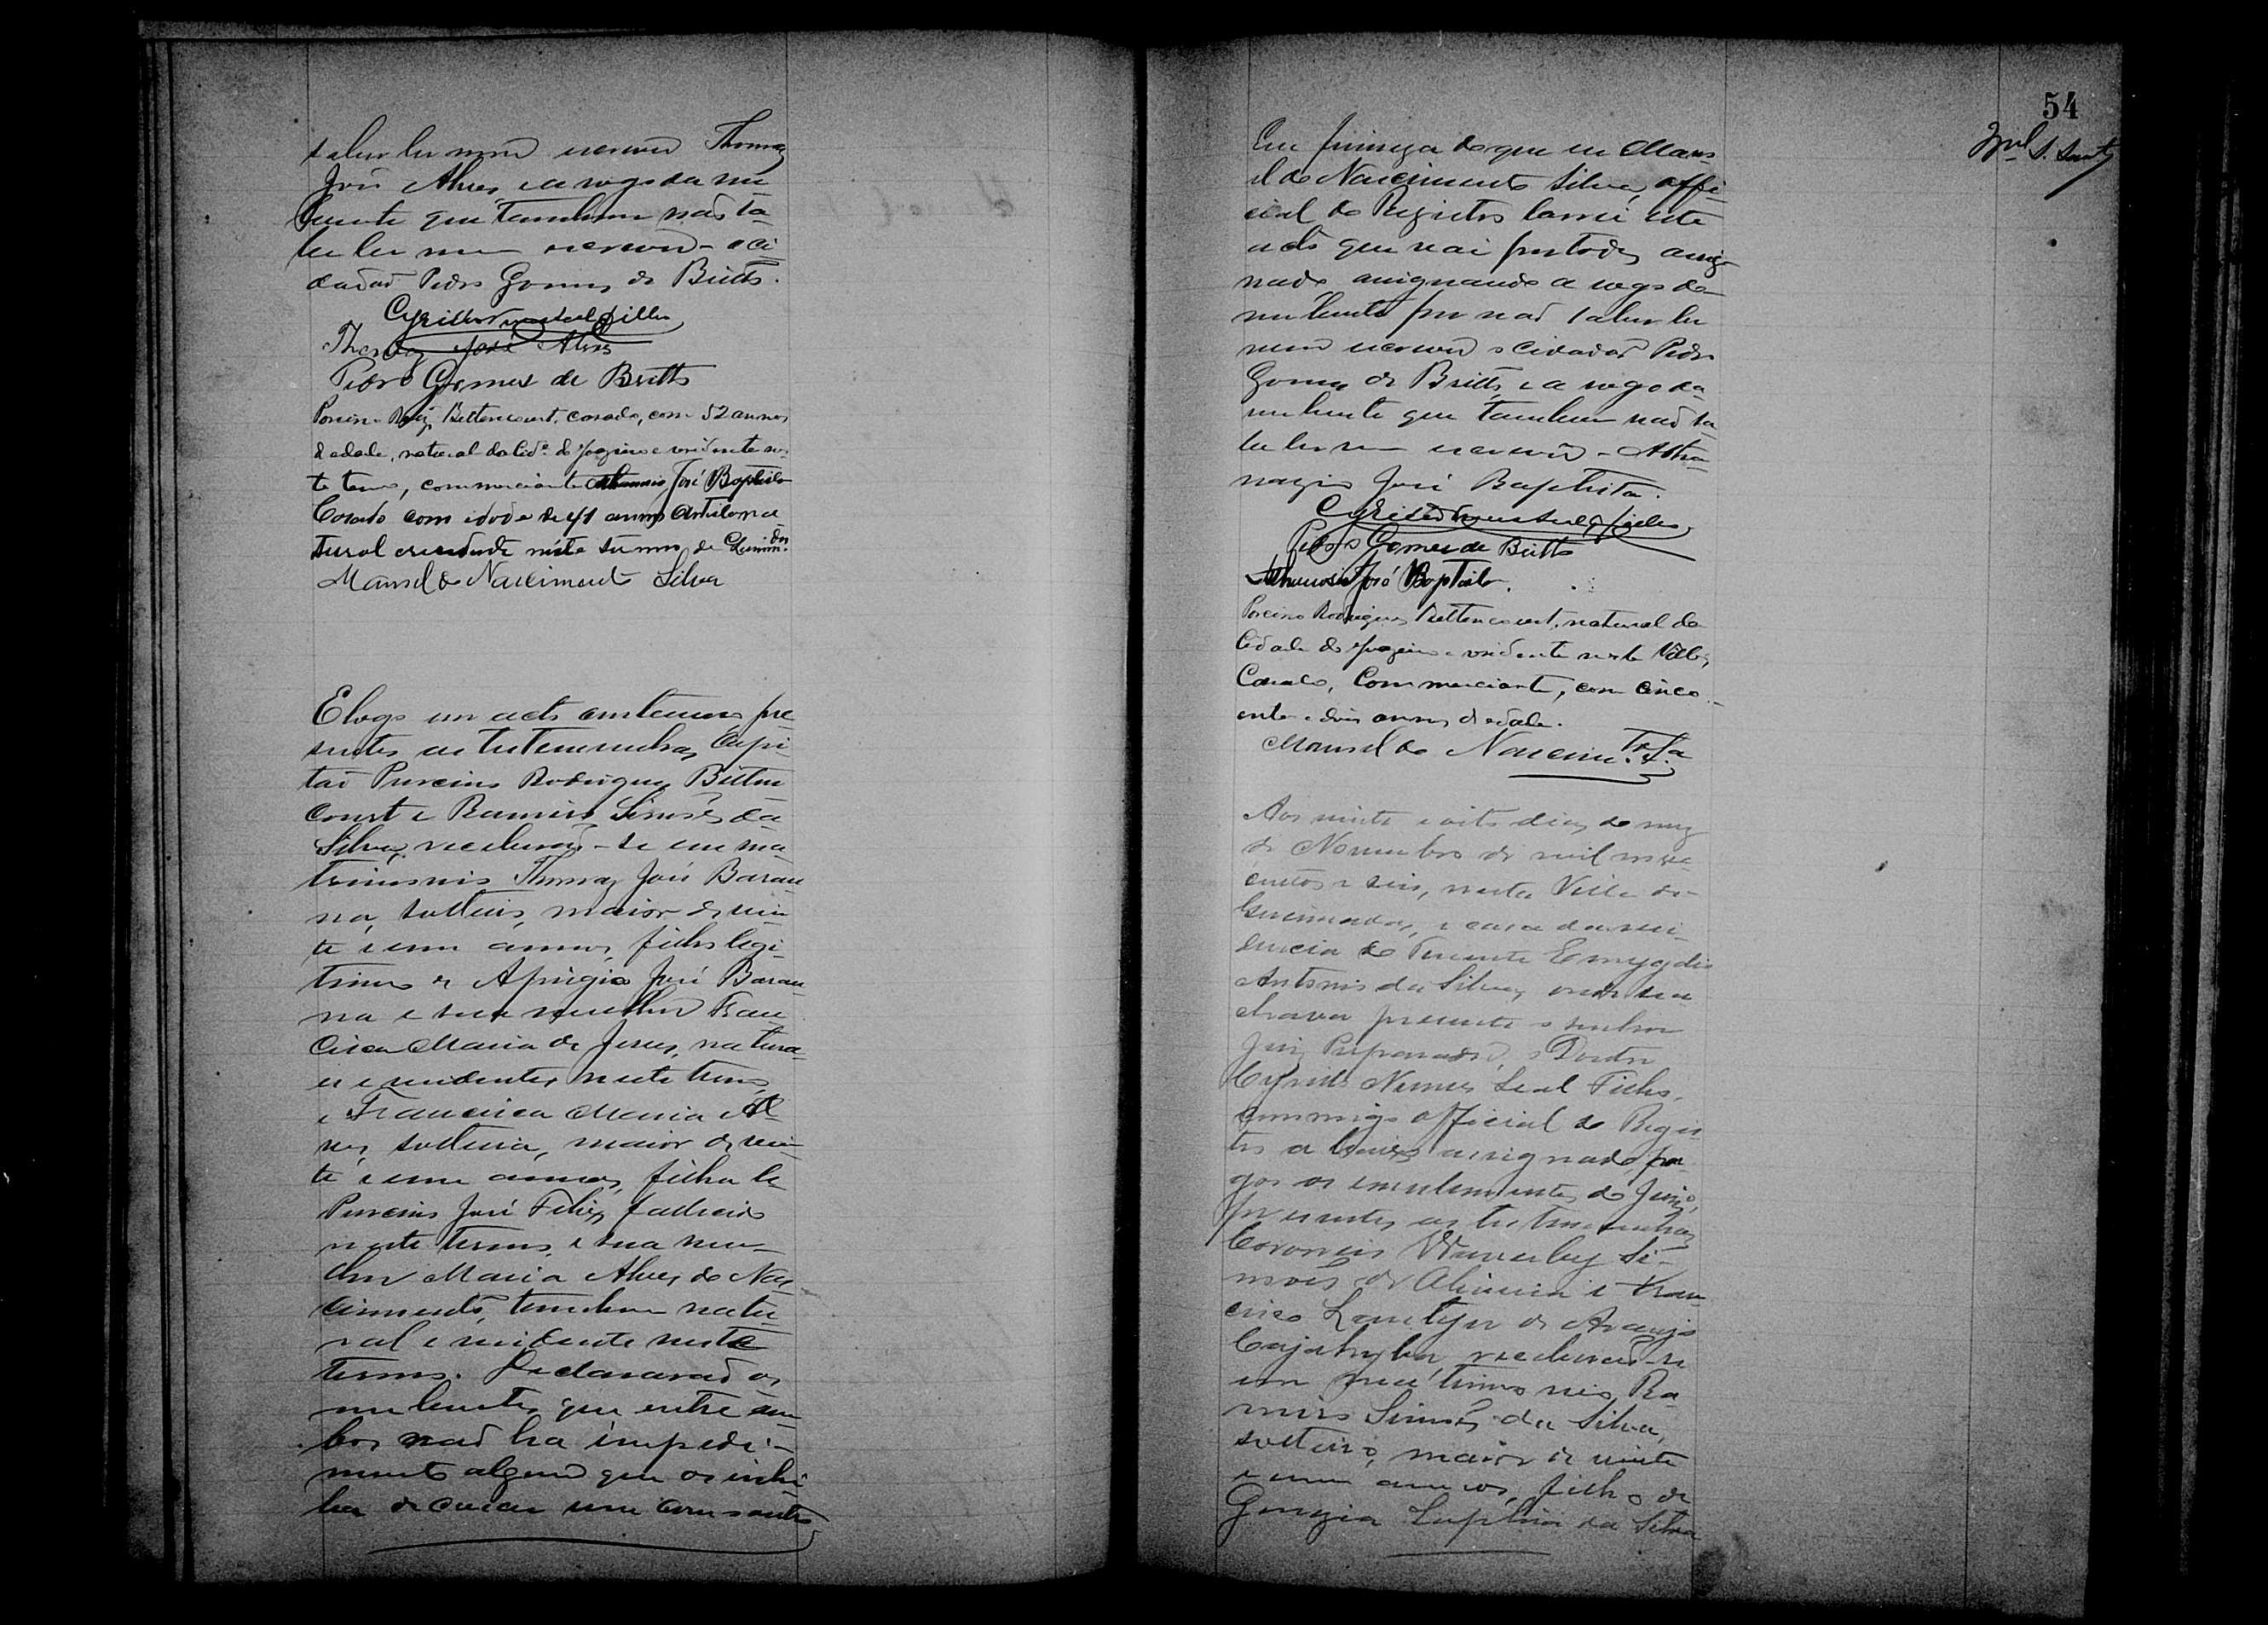 saber ler nem escrever Thomaz
José Alves, e a rogo da nu
bente que tambem não sa
be ler nem escrever - o ci
dadão Pedro Gomes de Britto.
Cyrillo Nunes Leal Filho
Thomaz José Alves
Pedro Gomes de Britto
Porcino Roiz Bettencourt, casado, com 52 annos
de edade, natural da Cid.e de Joazeiro e residente nes
te termo, commerciante Athanasio José Baptista
Casado com idade de 41 annos Artista na
tural e residente neste termo de Queimdas.
Manoel do Nascimento Silva
E logo em acto continuo, pre
sentes as testemunhas, Capi
tão Porcino Rodrigues Bitten
court e Ramiro Simões da
Silva, receberão-se em ma
trimonio Thomaz José Barau
na, solteiro, maior de vin
te e um annos, filho legi
timo de Aprigio José Barau
na e sua mulher Fran
cisca Maria de Jesus, natura
es e residentes neste termo,
e Francisca Maria Al
ves, solteira, maior de vin
te e um annos, filha de
Porcino José Felix, fallecido
neste termo, e sua mu
lher Maria Alves do Nas
cimento, tambem natu
ral e residente neste
termo. Declararão os
nubentes que entre am
bos não ha impedi-
mento algum que os inhi
ba de casar um com outro
54
Em firmeza do que eu Mano
el do Nascimento Silva, offi
cial do Registro lavrei este
acto que vai por todos assig
nado assignando a rogo do
nubente por não saber ler
nem escrever o cidadão Pedro
Gomes de Britto, e a rogo da
nubente que tambem não sa
be ler nem escrever - Atha
nazio José Baptista.
Cyrillo Nunes Leal Filho
Pedro Gomes de Britto
Athanasio José Baptista.
Porcino Rodrigues Bettencourt, natural da
Cidade de Joazeiro e residente nesta Villa,
Casado, Commerciante, com cinco
enta e dois annos de edade.
Manoel do Nascim.to S.a
Aos vinte e oito dias do mez
de Novembro de mil nove
centos e seis, nesta Villa de
Queimadas, e casa da resi-
dencia do Tenente Emygdio
Antonio da Silva, onde se a
chava presente o senhor
Juiz Preparador, o Doutor
Cyrillo Nunes Leal Filho,
commigo official do Regis
tro a baixo assignado, pa
gos os emolumentos do Juizo,
presentes as testemunhas
Coroneis Wanerley Si-
mões de Oliveira e Fran
cisco Lantyer de Araujo
Cajahyba, receberão-se
em matrimonio, Ra
miro Simões da Silva,
solteiro, maior de vinte
e um annos, filho de
Gonzia da Silva